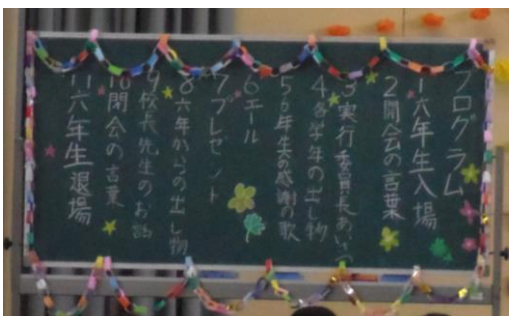 プログラム
1 六年生入場
2 開会の言葉
3 実行委員長あいさつ
4 各学年の出し物
5 6年生への感謝の歌
6 エール
7 プレゼント
8 六年からの出し物
9 校長先生のお話
10 閉会の言葉
11 六年生退場